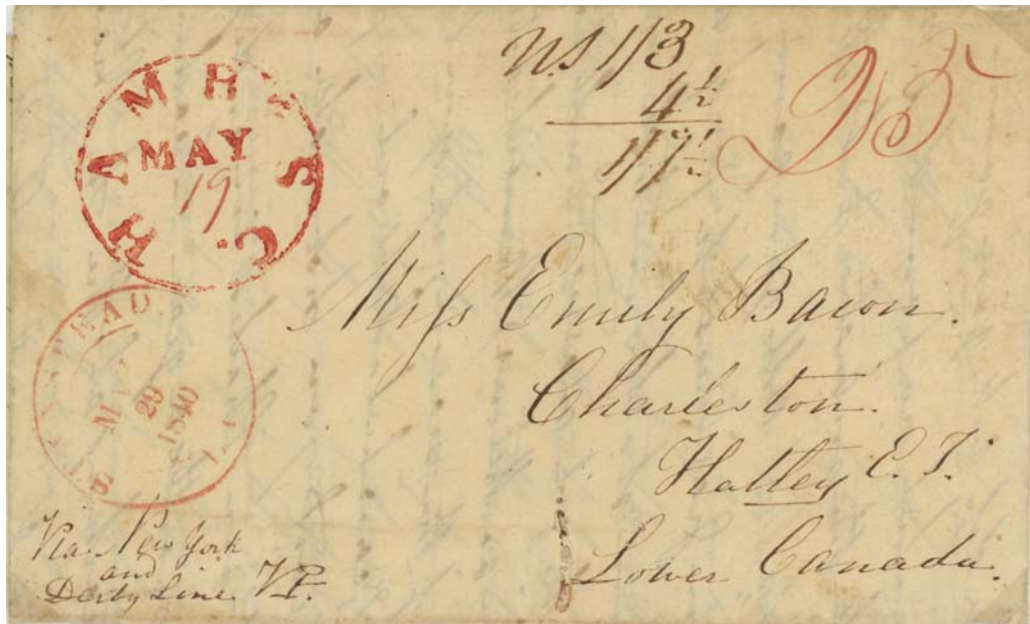 U.S 1/3
4½
1/7½
25
HAMR S.C.
MAY
19
STANSTEAD L.C.
MAY
29
1840
Miss Emily Bacon.
Charleston.
Hatley E.T.
Lower Canada.
Via New York
and
Derby Line VT.